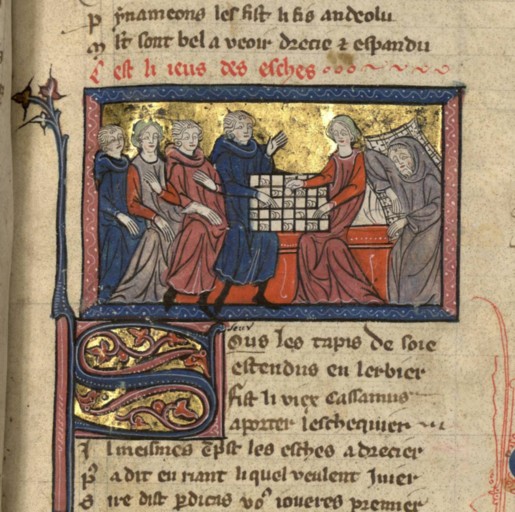 P ymameons les fist li fis andeolu
M lt sont bel a veoir drecie ⁊ espandu
C est li ieus des esches
Sous les tapis de soie
estendus en lerbier
fist li viex Cassamus
aporter leschequier
I l meismes ẽpst les esches a drecier
P̕ a dit en riant liquel veulent Juier
S ire dist pdicas vo9 ioueres premier